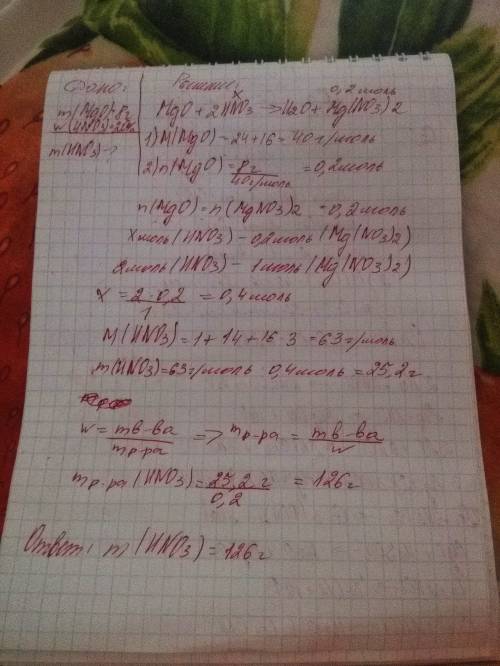 Дано:
m(MgO)=8г
w(HNO3)=20%
m(HNO3)-?
Решение:
x 0,2моль
MgO + 2HNO3 => H2O + Mg(NO3)2
1) M(MgO) = 24+16 = 40г/моль
2) n(MgO) = 8г/40г/моль = 0,2моль
n(MgO) = n(MgNO3)2 = 0,2моль
x моль (HNO3) - 0,2моль (Mg(NO3)2)
2моль (HNO3) - 1моль (Mg(NO3)2)
x = 2·0,2/1 = 0,4моль
M(HNO3) = 1+14+16·3 = 63г/моль
m(HNO3) = 63г/моль 0,4моль = 25,2г
w = mв-ва/mр-ра => mр-ра = mв-ва/w
mр-ра (HNO3) = 25,2г/0,2 = 126г
Ответ: m(HNO3) = 126г